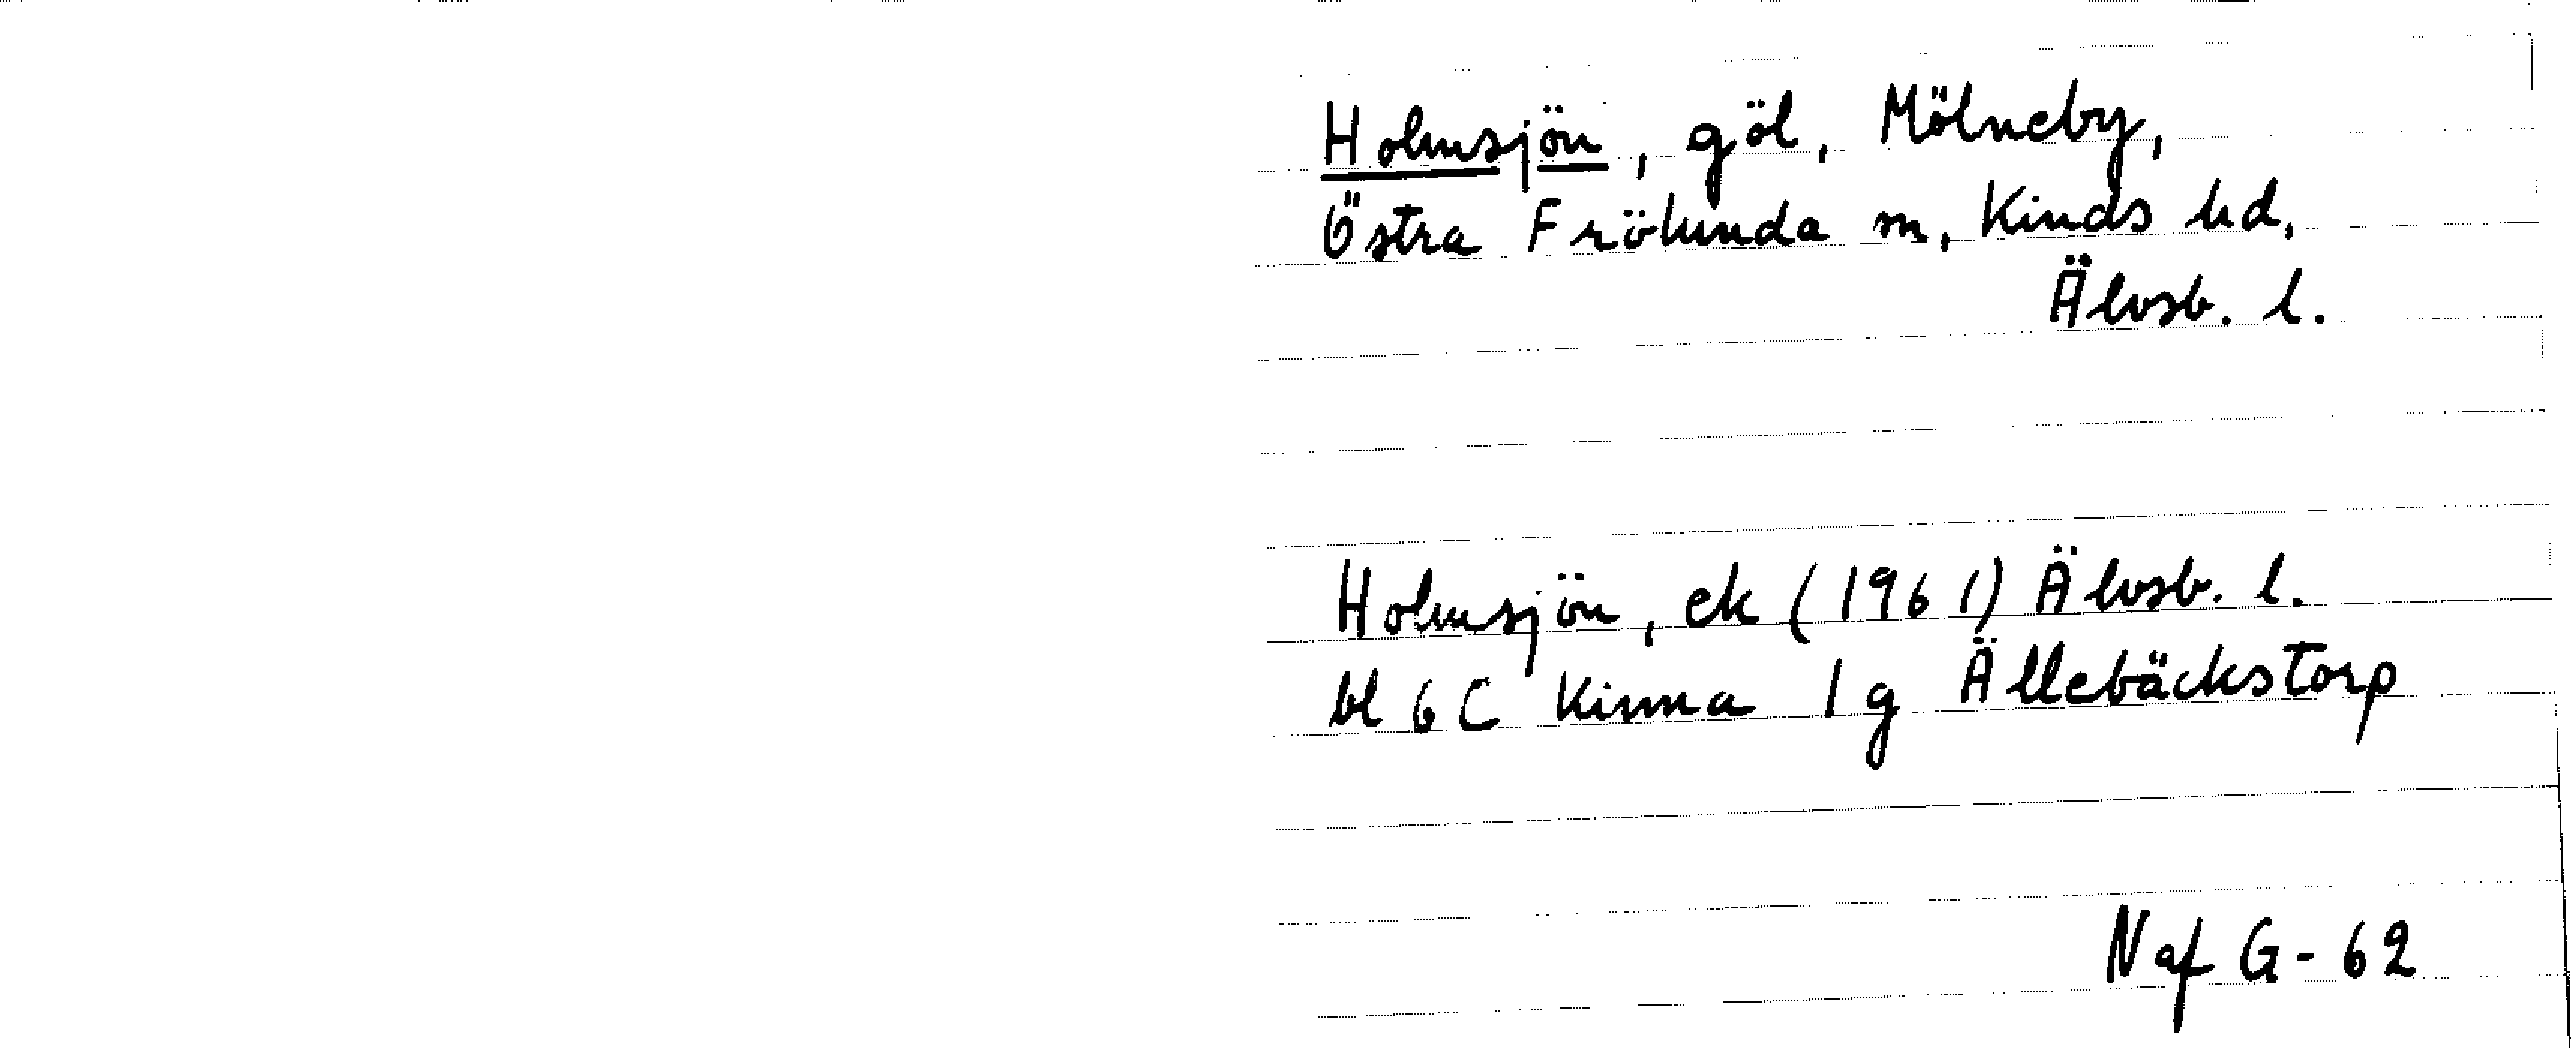 Holmsjön, göl, Mölneby,
Östra Frölunda sn, Kinds hd,
Älvsb. l.
Holmsjön, ek (1961) Älvsb. l.
bl 6 C Kinna 1 g Ällebäckstorp
N af G - 62